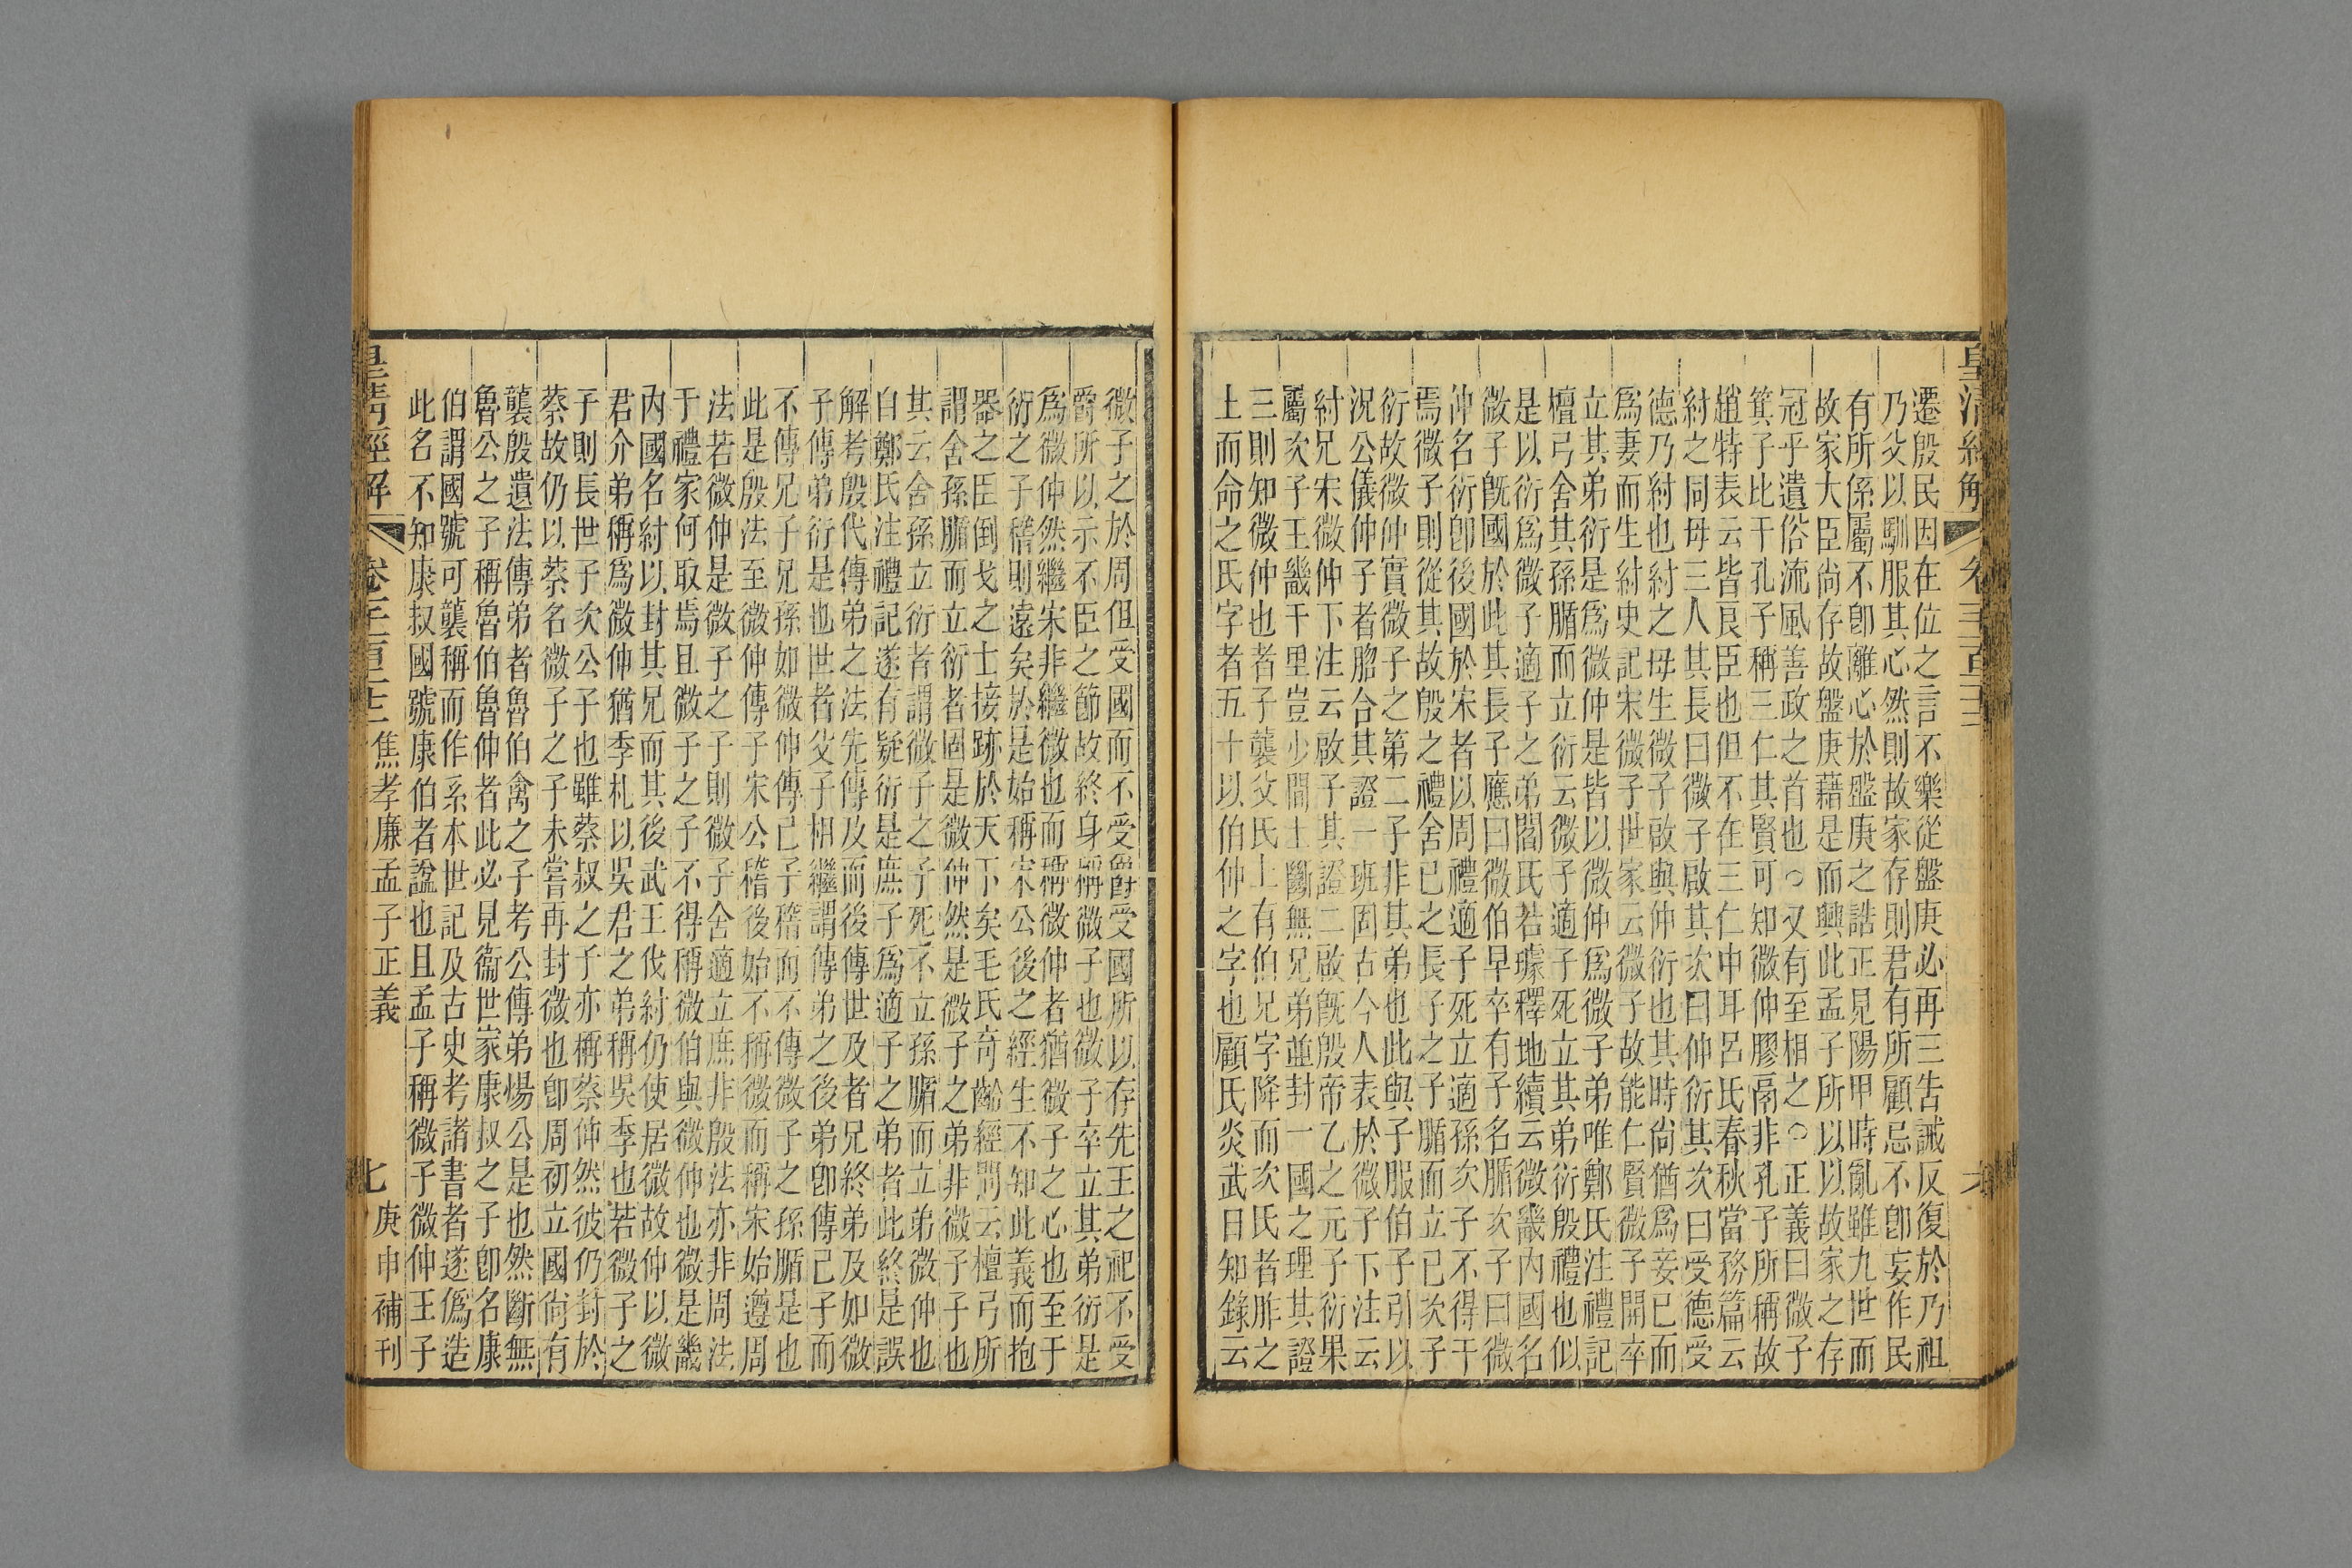 皇清經解
遷殷民因在位之言不樂從盤庚必再三告誡反復於乃祖
乃父以馴服其心然則故家存則君有所顧忌不卽妄作民
有所係屬不卽離心於盤庚之誥正見陽甲時亂雖九世而
故家大臣尚存故盤庚藉是而興此孟子所以以故家之存
冠乎遺俗流風善政之首也○又有至相之○正義曰微子
箕子比干孔子稱三仁其賢可知微仲膠鬲非孔子所稱故
趙特表云皆良臣也但不在三仁中耳呂氏春秋當務篇云
紂之同母三人其長曰微子啟其次曰仲衍其次曰受德受
德乃紂也紂之母生微子啟與仲衍也其時尙猶爲妾已而
爲妻而生紂史記宋微子世家云微子故能仁賢微子開卒
立其弟衍是爲微仲是皆以微仲爲微子弟唯鄭氏注禮記
檀弓舍其孫腯而立衍云微子適子死立其弟衍殷禮也似
是以衍爲微子適子之弟閻氏若璩釋地續云微畿內國名
微子旣國於此其長子應曰微伯早卒有子名腯次子曰微
仲名衍卽後國於宋者以周禮適子死立適孫次子不得干
焉微子則從其故殷之禮舍已之長子之子腯而立已次子
衍故微仲實微子之第二子非其弟也此與子服伯子引以
況公儀仲子者脗合其證一班固古今人表於微子下注云
紂兄宋微仲下注云啟子其證二啟旣殷帝乙之元子衍果
屬次子王畿千里豈少閒土斷無兄弟並封一國之理其證
三則知微仲也者子襲父氏上有伯兄字降而次氏者胙之
土而命之氏字者五十以伯仲之字也顧氏炎武日知錄云
微子之於周但受國而不受爵受國所以存先王之祀不受
爵所以示不臣之節故終身稱微子也微子卒立其弟衍是
爲微仲然繼宋非繼微也而稱微仲者猶微子之心也至于
衍之子稽則遠矣於是始稱宋公後之經生不知此義而抱
器之臣倒戈之士接跡於天下矣毛氏奇齡經問云檀弓所
謂舍孫腯而立衍者固是微仲然是微子之弟非微子子也
其云舍孫立衍者謂微子之子死不立孫腯而立弟微仲也
自鄭氏注禮記遂有疑衍是庶子爲適子之弟者此終是誤
解考殷代傳弟之法先傳及而後傳世及者兄終弟及如微
子傳弟衍是也世者父子相繼謂傳弟之後弟卽傳己子而
不傳兄子兄孫如微仲傳己子稽而不傳微子之孫腯是也
此是殷法至微仲傳子宋公稽後始不稱微而稱宋始遵周
法若微仲是微子之子則微子舍適立庶非殷法亦非周法
于禮家何取焉且微子之子不得稱微伯與微仲也微是畿
內國名紂以封其兄而其後武王伐紂仍使居微故仲以微
君介弟稱爲微仲猶季札以吳君之弟稱吳季也若微子之
子則長世子次公子也雖蔡叔之子亦稱蔡仲然彼仍封於
蔡故仍以蔡名微子之子未嘗再封微也卽周初立國尙有
襲殷遺法傳弟者魯伯禽之子考公傳弟煬公是也然斷無
魯公之子稱魯伯魯仲者此必見衞世家康叔之子卽名康
伯謂國號可襲稱而作系本世記及古史考諸書者遂僞造
此名不知康叔國號康伯者諡也且孟子稱微子微仲王子
皇淸經解 焦孝廉孟子正義 七 庚申補刊